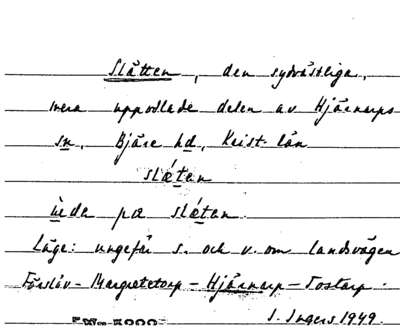 Slätten, den sydvästliga,
mera uppodlade delen av Hjärnarps
sn, Bjäre hd, Krist. län
slǽtan
ùeda pæ slǽtan.
Läge: ungefär s. och v. om landsvägen
Förslöv - Margretetorp - Hjärnarp - Tostarp.
I. Ingers 1949.